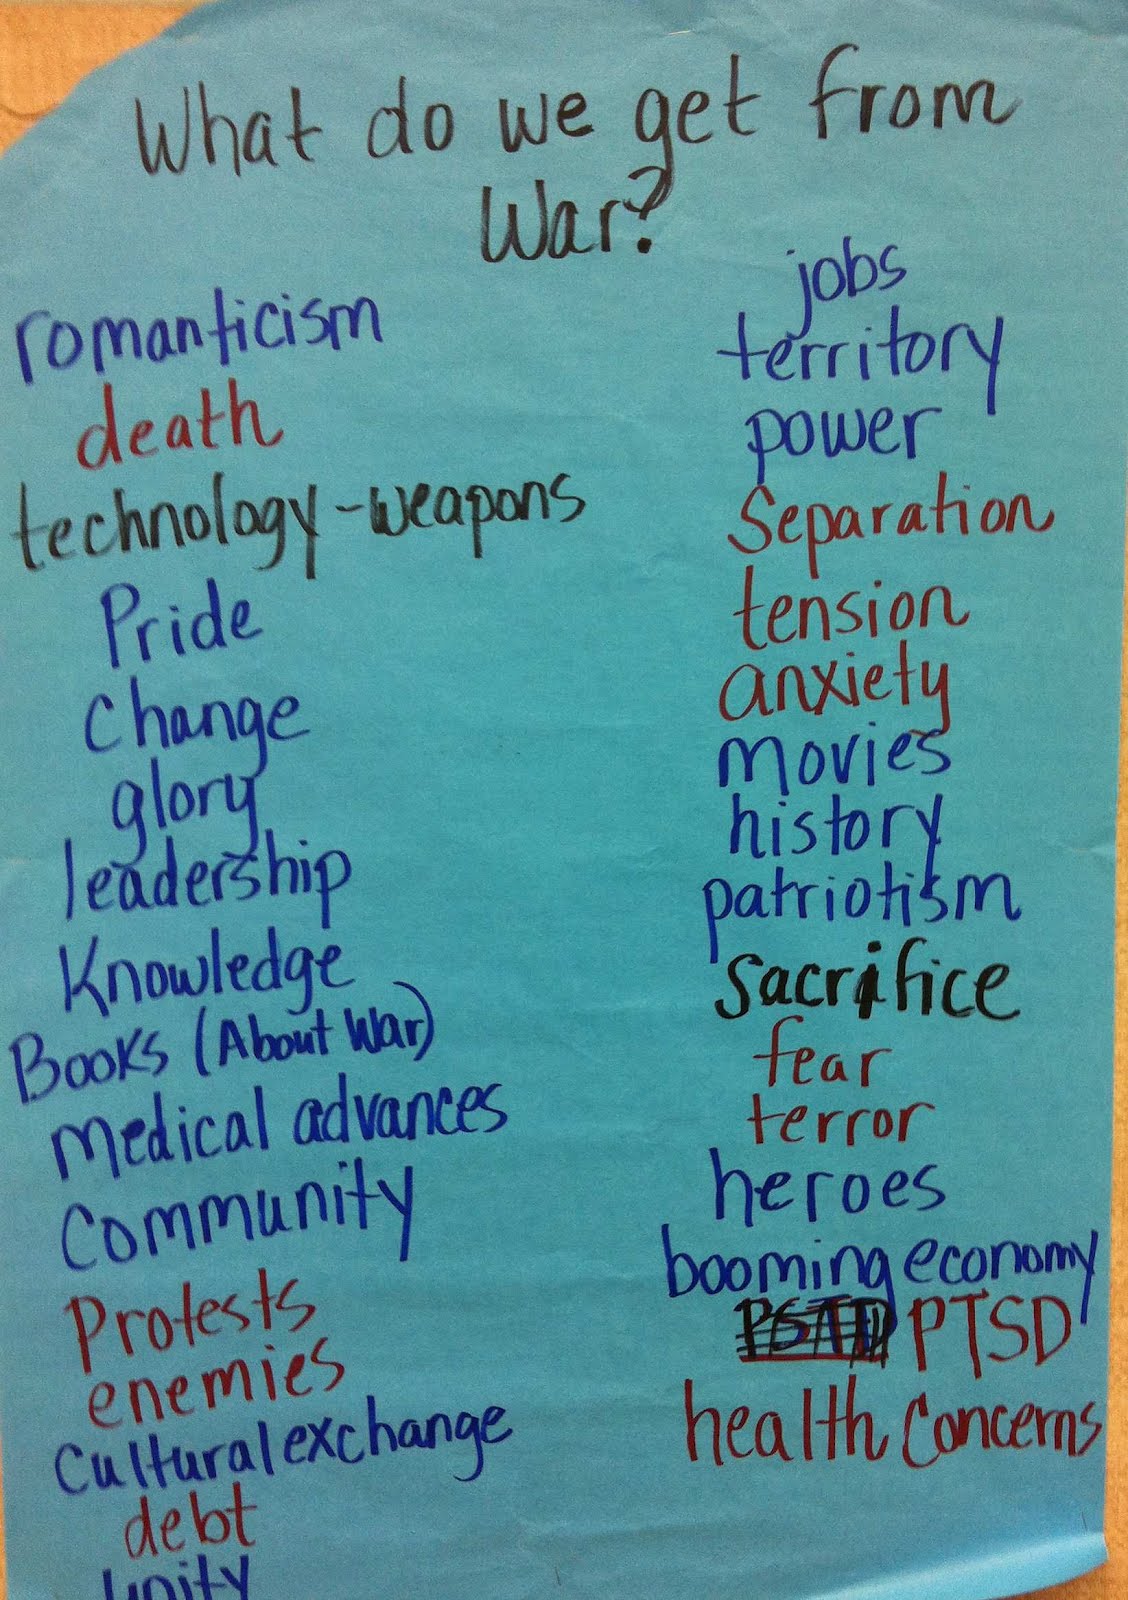 What do we get from
War?
romanticism
death
technology-weapons
Pride
Change
glory
leadership
Knowledge
Books (About War)
Medical advances
Community
Protests
enemies
Cultural exchange
debt
unity
jobs
territory
power
Separation
tension
anxiety
movies
history
patriotism
sacrifice
fear
terror
heroes
booming economy
PTSD
health Concerns